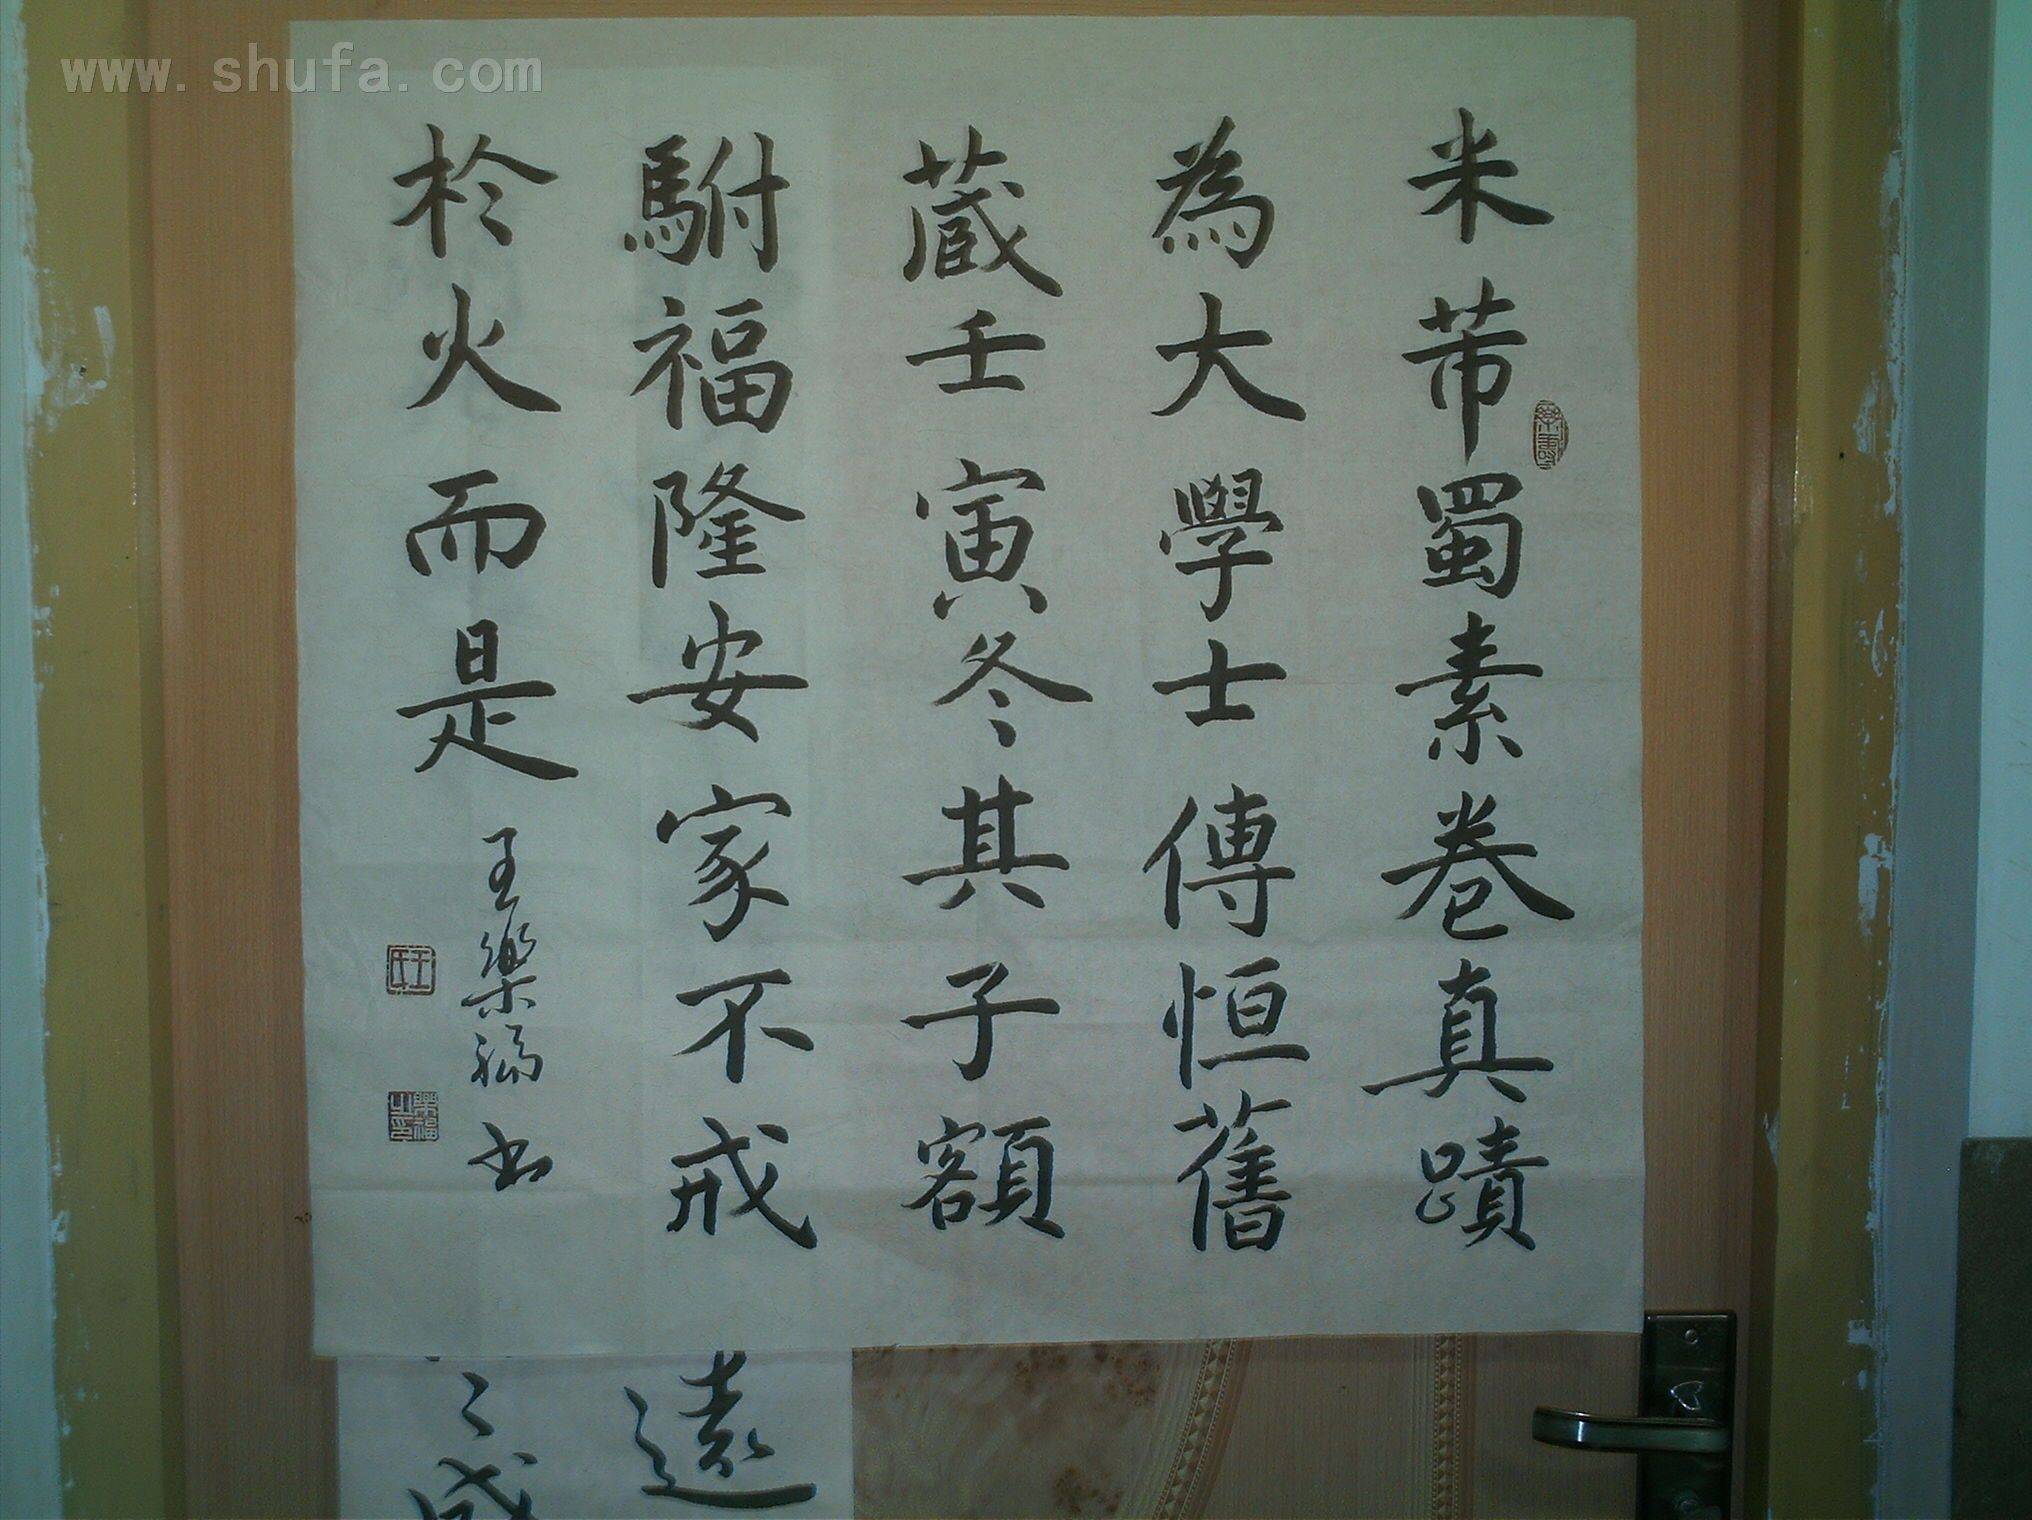 米芾蜀素卷真蹟
為大學士傅恒舊
蔵壬寅冬其子額
駙福隆安家不戒
於火而是
王樂福书
王氏
樂福之印
遠
www.shufa.com